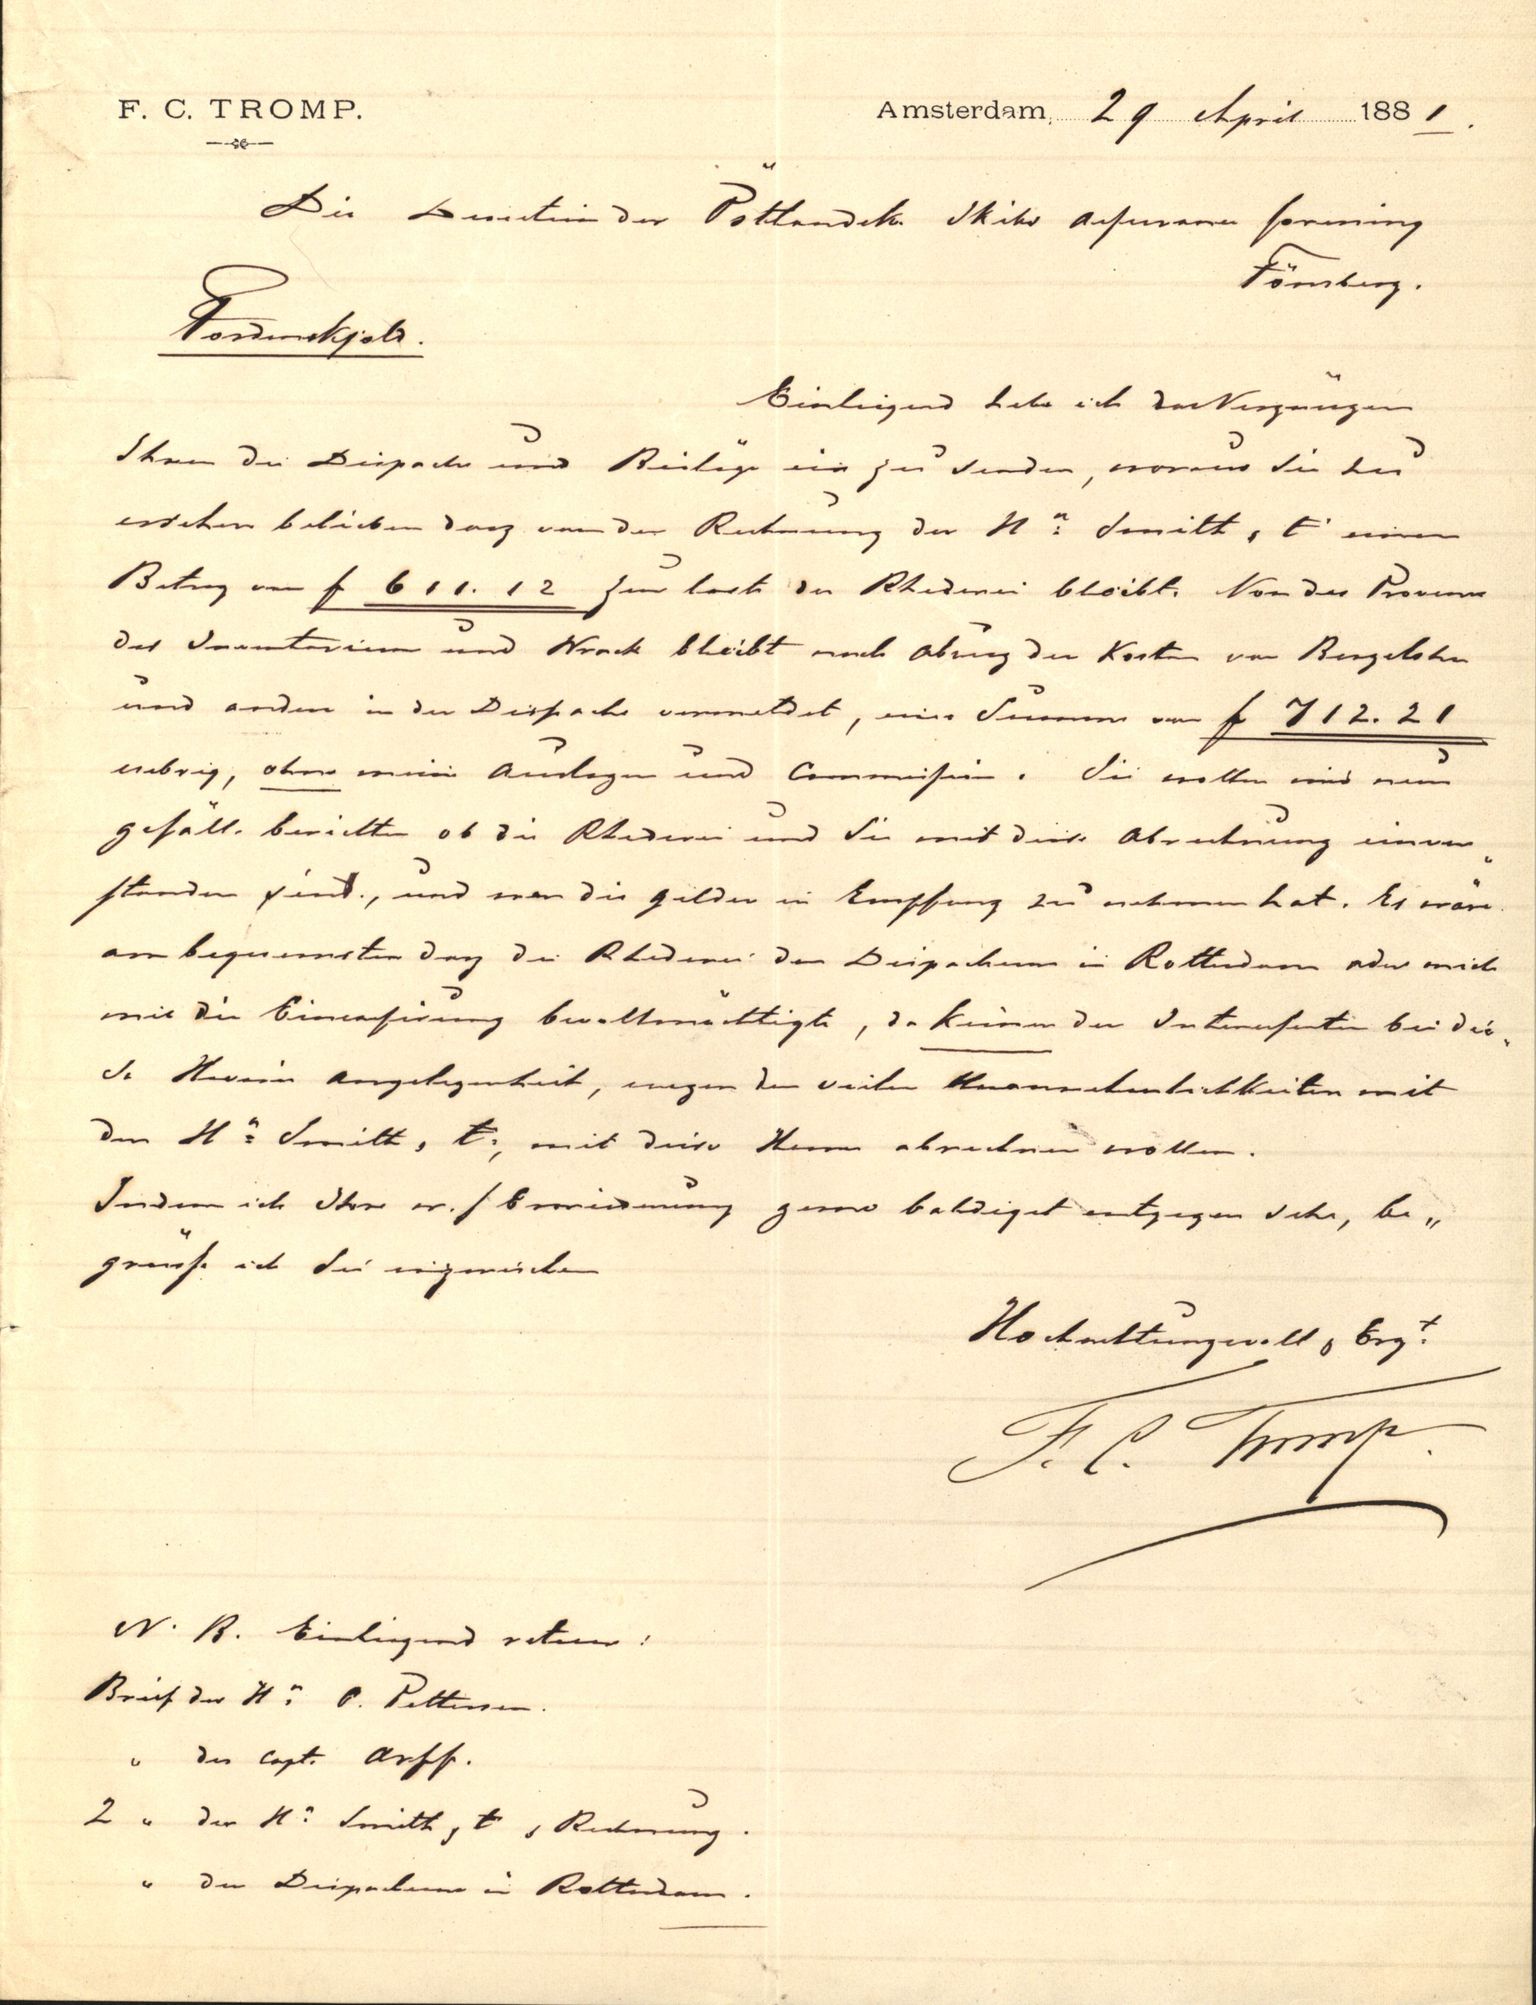 F. C. TROMP.
Amsterdam, 29 April 1881.
Die Direction der Östlandske Skibs assurance forening
Tönsberg.
Tordenskjold.
Einliegend habe ich das Vergnügen
Ihnen die Dispache und Beiläge ein zu senden, woraus Sie
ersehen belieben dasz von der Rechnung der Hn Smith & Co einen
Betrag von f 611.12 zur last der Rhederei bleibt. Von des Provenue
des Inventarium und Wrack bleibt nach Abzug der Kosten von Bergelohn
und andere in der Dispache vermeldet, eine Summe von f 712.21
uebrig, ohne meine Auslagen und Commission. Sie wollen mir nun
gefäll. berichten ob die Rhederei und Sie mit diese Abrechnung einver„
standen sind, und wer die gelder in Empfang zu nehmen hat. Es wäre
am bequemsten dasz die Rhederei den Dispacheur in Rotterdam oder mich
mit die Eincassirung bevollmächtigte, da keiner der Interessenten bei die„
se Havarie Angelegenheit, wegen den vielen Unannehmlichkeiten mit
den Hn Smith & Co, mit diese Herren abrechnen wollen.
Indem ich Ihre w. Erwiederung gerne baldigst entgegen sehe, be„
grüsse ich Sie inzwischen
Hochachtungsvoll & Ergt
F. C. Tromp.
N. B. Einliegend retour:
Brief der Hn O. Pettersen.
" des Capt. Arff.
2 " der Hn Smith & Co & Rechnung.
" der Dispacheur in Rotterdam.